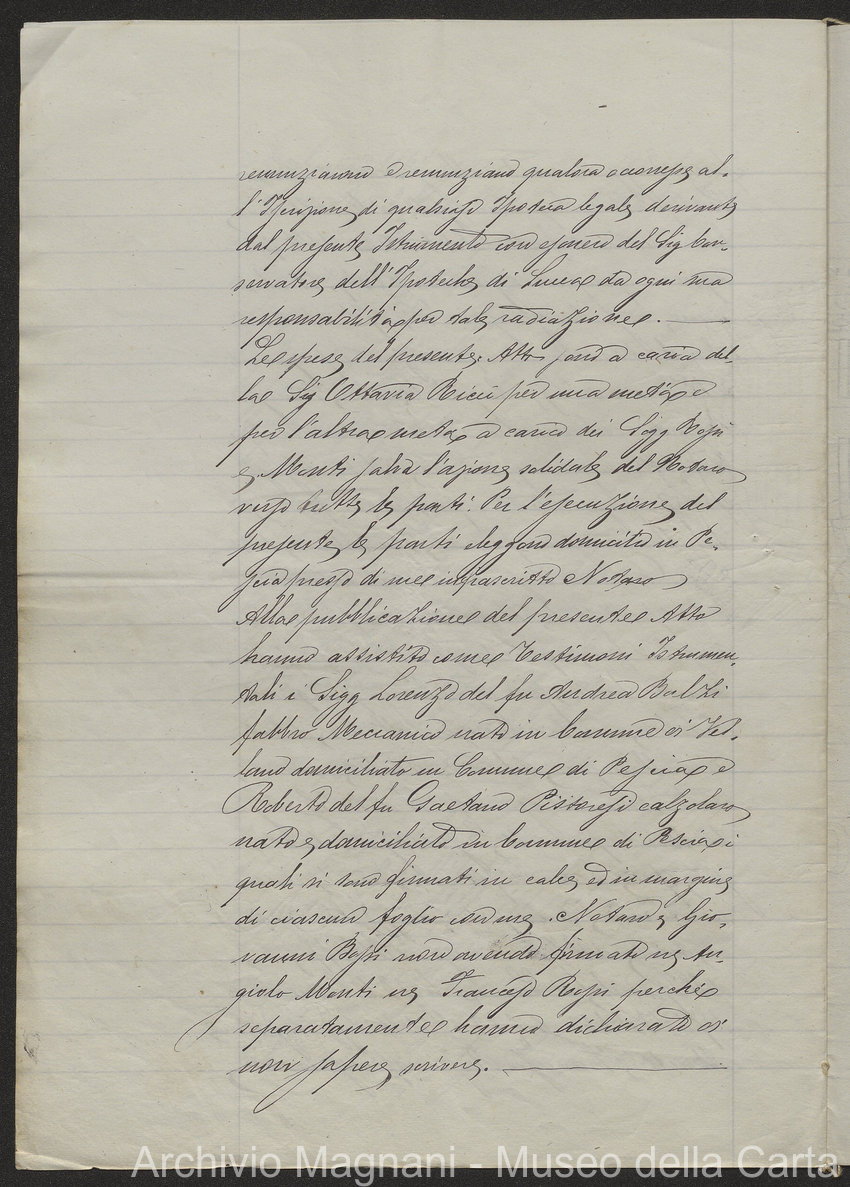 renunziarono e renunziano qualora occoresse al-
l'Iscrizione di qualsiasi Ipoteca legale derivante
dal presente Istrumento con esonero del Sig Con-
servatore dell'Ipoteche di Lucca da ogni sua
responsabilità per tale radiazione.
Le spese del presente Atto sono a carico del-
la Sig Ottavia Ricci per una metà e
per l'altra metà a carico dei Sigg
e Monti salva l'azione solidale del Notaro
verso tutte le parti. Per l'esecuzione del
presente le parti eleggono domicilio in Pe-
scia presso di me infrascritto Notaro
Alla pubblicazione del presente Atto
hanno assistito come Testimoni Istrumen-
tali i Sigg Lorenzo del fu Andrea Balzi
fabbro Meccanico nato in Comune di Vel-
lano domiciliato in Comune di Pescia e
Roberto del fu Gaetano Pistoresi calzolaro
nato e domiciliato in Comune di Pescia i
quali si sono firmati in calce ed in margine
di ciascun foglio con me Notaro e Gio-
vanni non avendo firmato ne An-
giolo Monti ne Francesco perchè
separatamente hanno dichiarato di
non sapere scrivere.
Archivio Magnani - Museo della Carta